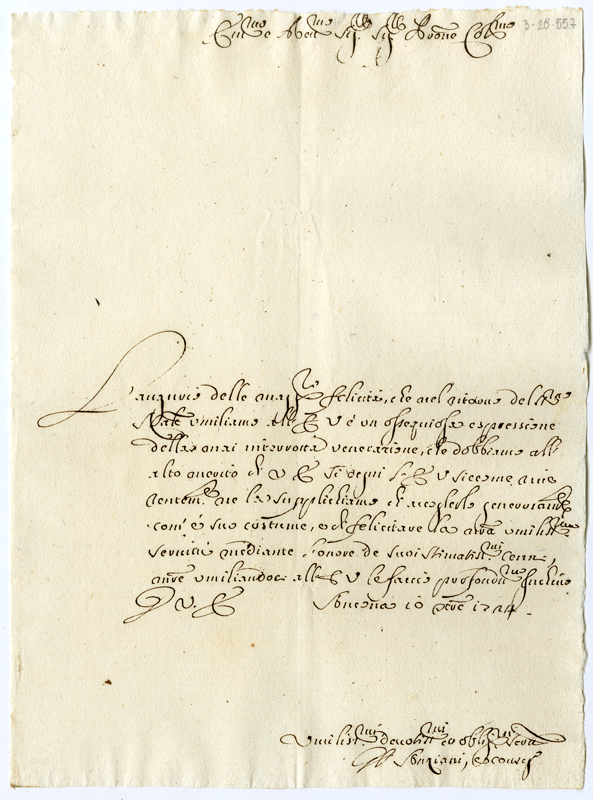 Em.mo e Rev.mo Sig. Sig. Prone Col.mo
3-20-557
L'augurio delle magg.ri felicità, che nel ritorno del S.to
Nale umiliamo all' E V è un ossequiosa espressione
della mai interrotta venerazione, che dobbiamo all'
alto merito di V E Si degni l' E V siccome
la supplichiamo di accoglerlo generosam.te
com' è suo costume, e di felicitare la nra umiliss.ma
servitù mediante l'onore de suoi stimatiss.mi cenni,
mentre umiliandoci all' E V le faccio profondiss.mo inchino
Di V. E 10 Xbre 1714.
Umiliss.mi devotiss.mi ed obblig.mi Serv.ri
Gli